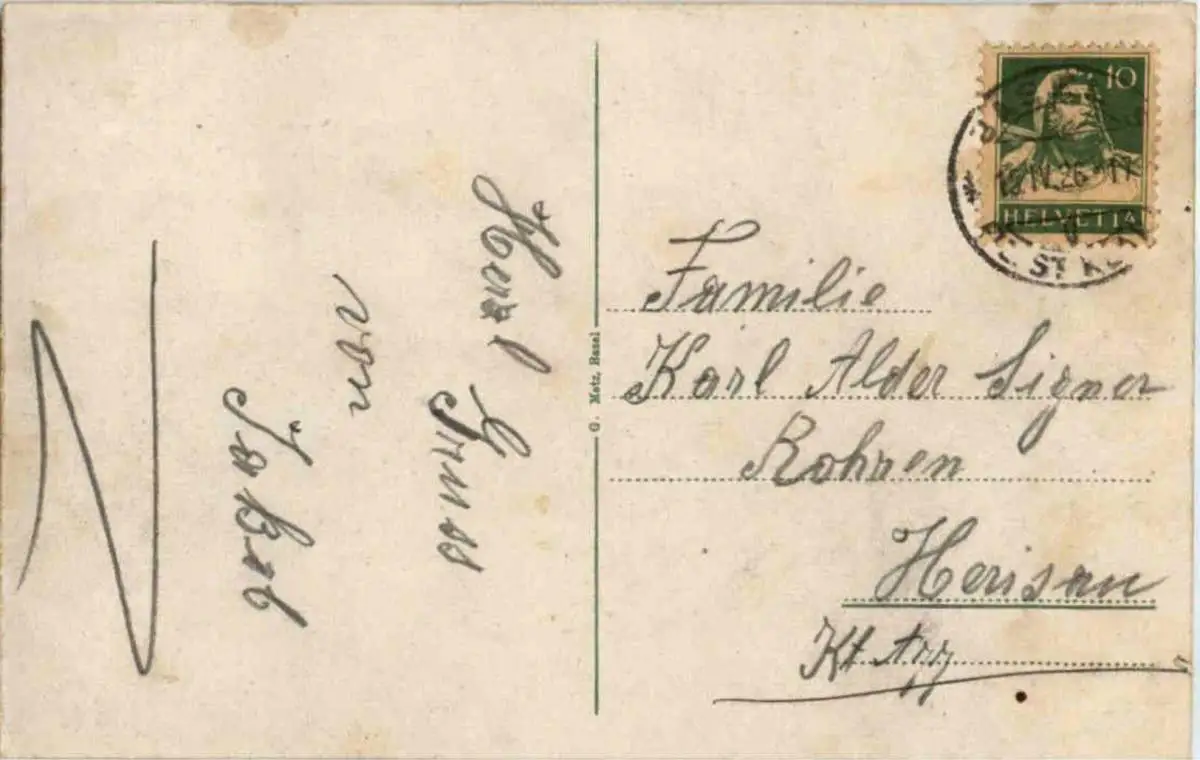 Herzl Gruss
von
Jakob
G. Metz, Basel
10
HELVETIA
Familie
Karl Alder Signer
Rohren
Herisau
Kt App